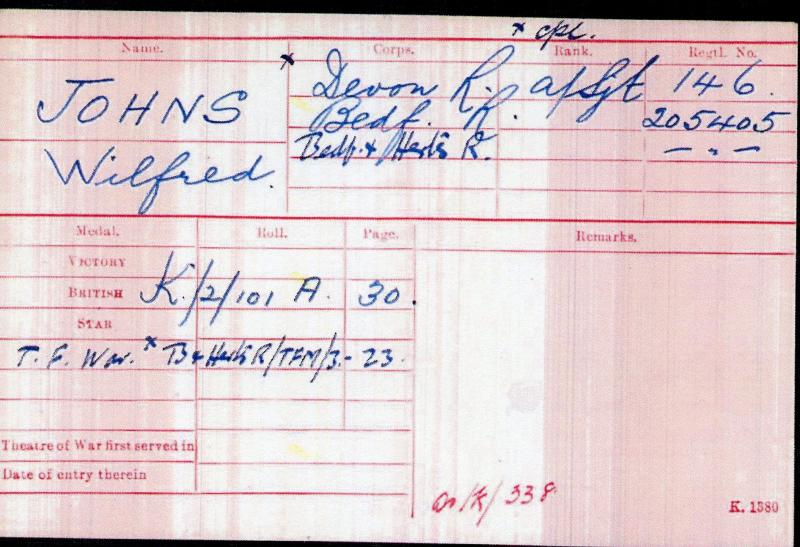 * Cpl.
Name. Corps. Rank. Regtl. No.
JOHNS * Devon R. a/Sgt 146.
Bedf. R. 205405
Wilfred. Bedf. & Herts R. — „ —
Medal. Roll. Page. Remarks.
VICTORY
BRITISH K/2/101 A. 30.
STAR
T. F. War. * B & Herts R/TFM/3.- 23.
Theatre of War first served in
Date of entry therein
/K/338
K. 1380